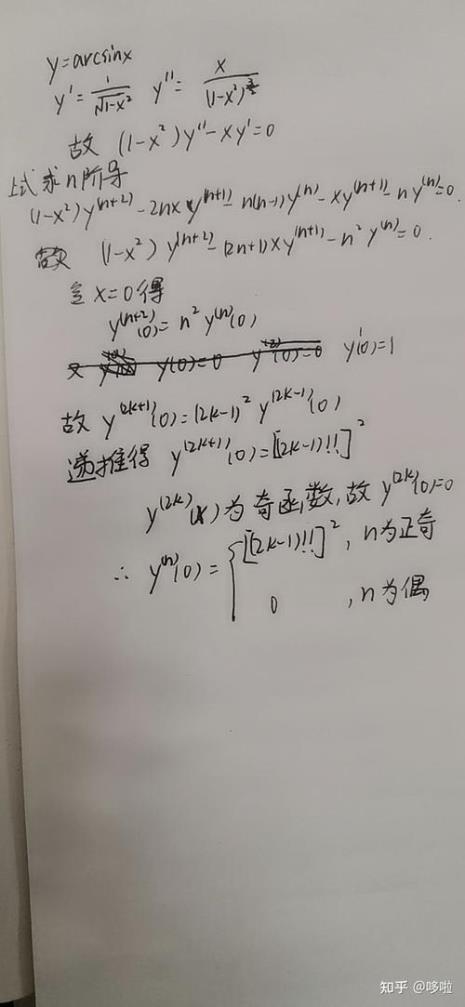 y=arcsinx
y'=1/√(1-x²) y''=x/(1-x²)^(3/2)
故 (1-x²)y''-xy'=0
上式求n阶导
(1-x²)y^(n+2)-2nxy^(n+1)-n(n-1)y^(n)-xy^(n+1)-ny^(n)=0.
故 (1-x²)y^(n+2)-(2n+1)xy^(n+1)-n²y^(n)=0.
令x=0得
y^(n+2)(0)=n²y^(n)(0)
又 y(0)=0 y^(2)(0)=0 y'(0)=1
故 y^(2k+1)(0)=(2k-1)²y^(2k-1)(0)
递推得 y^(2k+1)(0)=[(2k-1)!!]²
y^(2k)(x)为奇函数,故y^(2k)(0)=0
∴ y^(n)(0)={[(2k-1)!!]², n为正奇
0 , n为偶
知乎 @哆啦